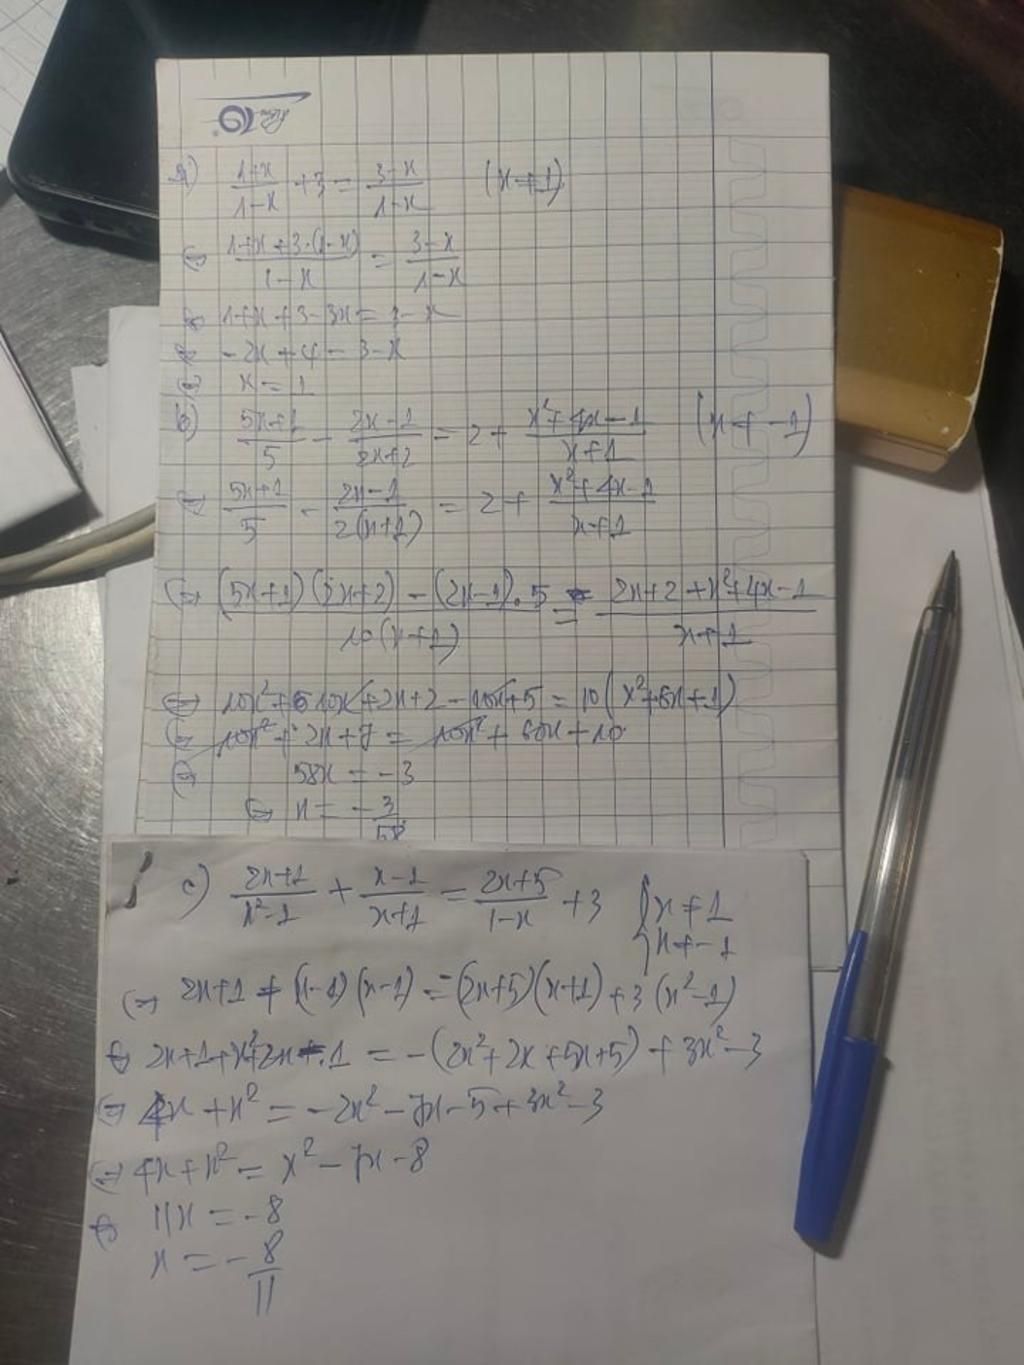 a) \frac{1+x}{1-x} + 3 = \frac{3-x}{1-x} (x ≠ 1)
⇔ \frac{1+x+3.(1-x)}{1-x} = \frac{3-x}{1-x}
⇔ 1+x+3-3x = 3-x
⇔ -2x+4 = 3-x
⇔ x = 1
b) \frac{5x+1}{5} - \frac{2x-1}{2x+2} = 2 + \frac{x²+4x-1}{x+1} (x ≠ -1)
⇔ \frac{5x+1}{5} - \frac{2x-1}{2(x+1)} = 2 + \frac{x²+4x-1}{x+1}
⇔ \frac{(5x+1)(2x+2) - (2x-1).5}{10(x+1)} = \frac{2x+2+x²+4x-1}{x+1}
⇔ 10x²+10x+2x+2-10x+5 = 10(x²+6x+1)
⇔ 10x²+2x+7 = 10x²+60x+10
⇔ 58x = -3
⇔ x = -\frac{3}{58}
c) \frac{2x+1}{x²-1} + \frac{x-1}{x+1} = \frac{2x+5}{1-x} + 3 { x ≠ 1
x ≠ -1
⇔ 2x+1 + (x-1)(x-1) = (2x+5)(x+1) + 3(x²-1)
⇔ 2x+1+x²+2x-1 = -(2x²+2x+5x+5) + 3x²-3
⇔ 4x + x² = -2x²-7x-5+3x²-3
⇔ 4x+x² = x²-7x-8
⇔ 11x = -8
x = -\frac{8}{11}